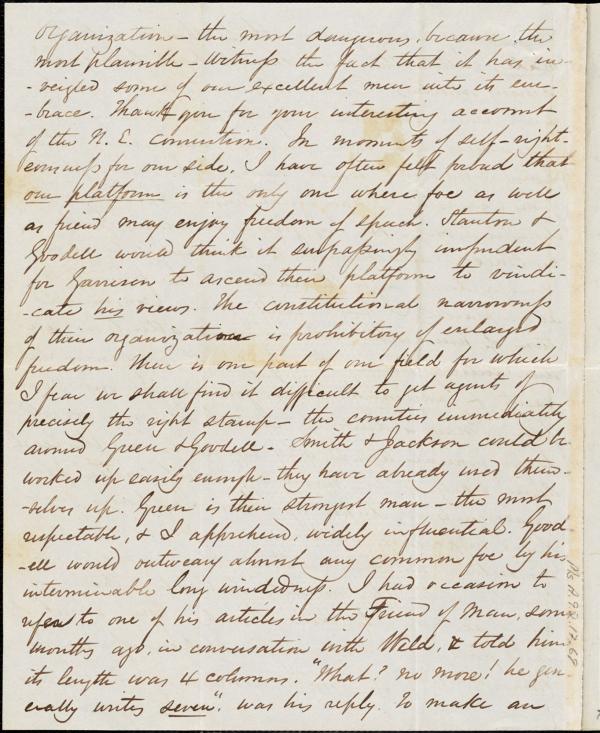 organization – the most dangerous, because the
most plausible – Witness the fact that it has in-
-veigled some of our excellent men into its em-
-brace. Thank you for your interesting account
of the N. E. Convention. In moments of self-right-
eousness for our side, I have often felt proud that
our platform is the only one where foe as well
as friend may enjoy freedom of speech. Stanton &
Goodell would think it surpassingly impudent
for Garrison to ascend their platform to vindi-
-cate his views. The constitutional narrowness
of their organization is prohibitory of enlarged
freedom. There is one part of our field for which
I fear we shall find it difficult to get agents of
precisely the right stamp – the counties immediately
around Green & Goodell. Smith & Jackson could be
worked up easily enough – they have already used them-
-selves up. Green is their strongest man – the most
respectable, & I apprehend, widely influential. Good-
-ell would outweary almost any common foe by his
interminable long windedness. I had occasion to
refer to one of his articles in the Friend of Man, some
months ago, in conversation with Weld, & told him
its length was 4 columns. "What? no more! he gen-
erally writes seven", was his reply. To make an